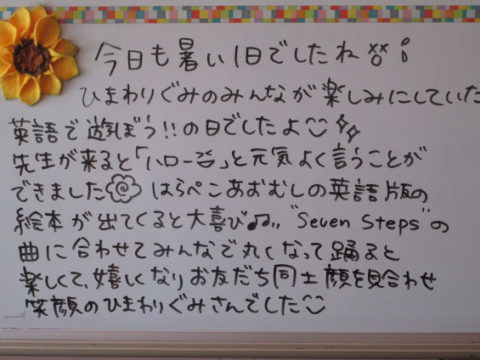 今日も暑い1日でしたね
ひまわりぐみのみんなが楽しみにしていた
英語で遊ぼう!!の日でしたよ
先生が来ると「ハロー」と元気よく言うことが
できました はらぺこあおむしの英語版の
絵本が出てくると大喜び♫♪, "Seven Steps"の
曲に合わせてみんなで丸くなって踊ると
楽しくて、嬉しくなりお友だち同士顔を見合わせ
笑顔のひまわりぐみさんでした